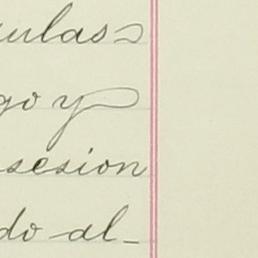 ulas
go y
sesion
do al-